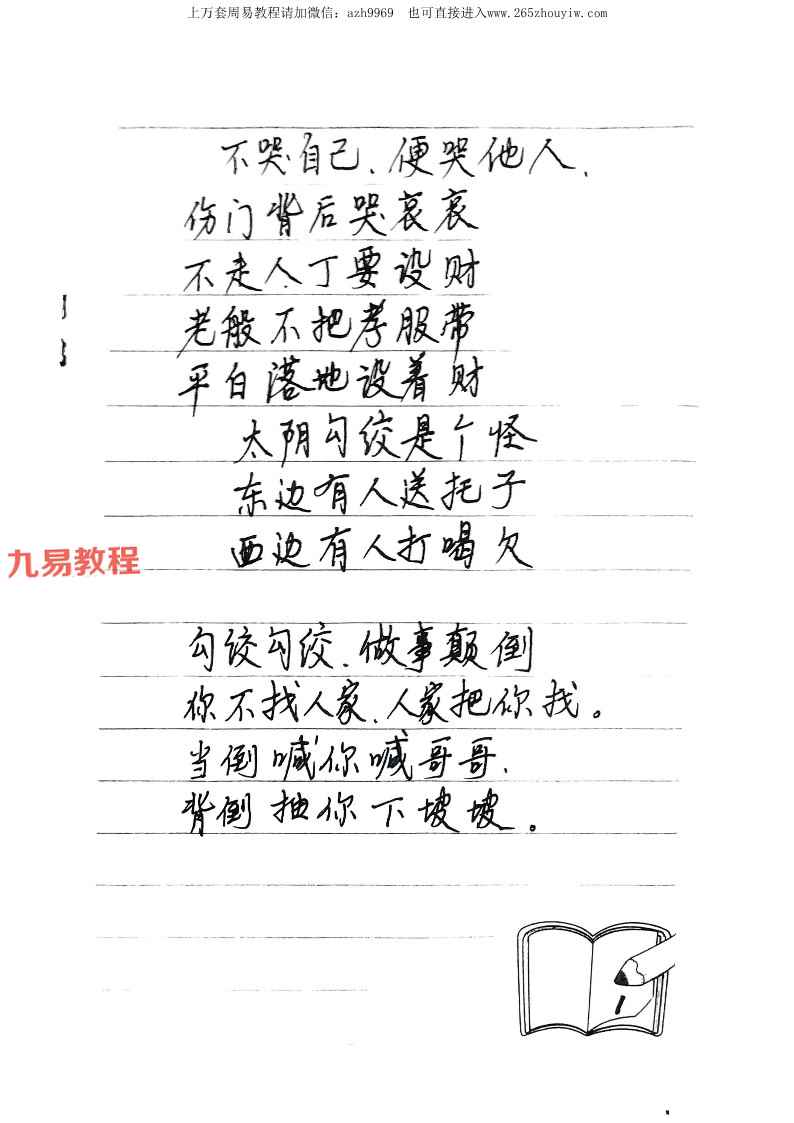 上万套周易教程请加微信：azh9969 也可直接进入www.265zhouyiw.com
不哭自己、便哭他人、
伤门背后哭哀哀
不走人、丁要设财
老般不把孝服带
平白落地设着财
太阴勾绞是个怪
东边有人送托子
西边有人打喝欠
九易教程
勾绞勾绞、做事颠倒
你不找人家、人家把你找。
当倒喊你喊哥哥、
背倒抽你下坡坡。
1